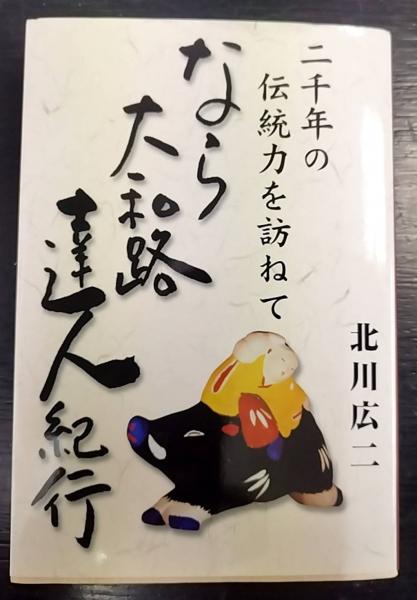 二千年の
伝統力を訪ねて
なら
大和路
達人紀行
北川広二